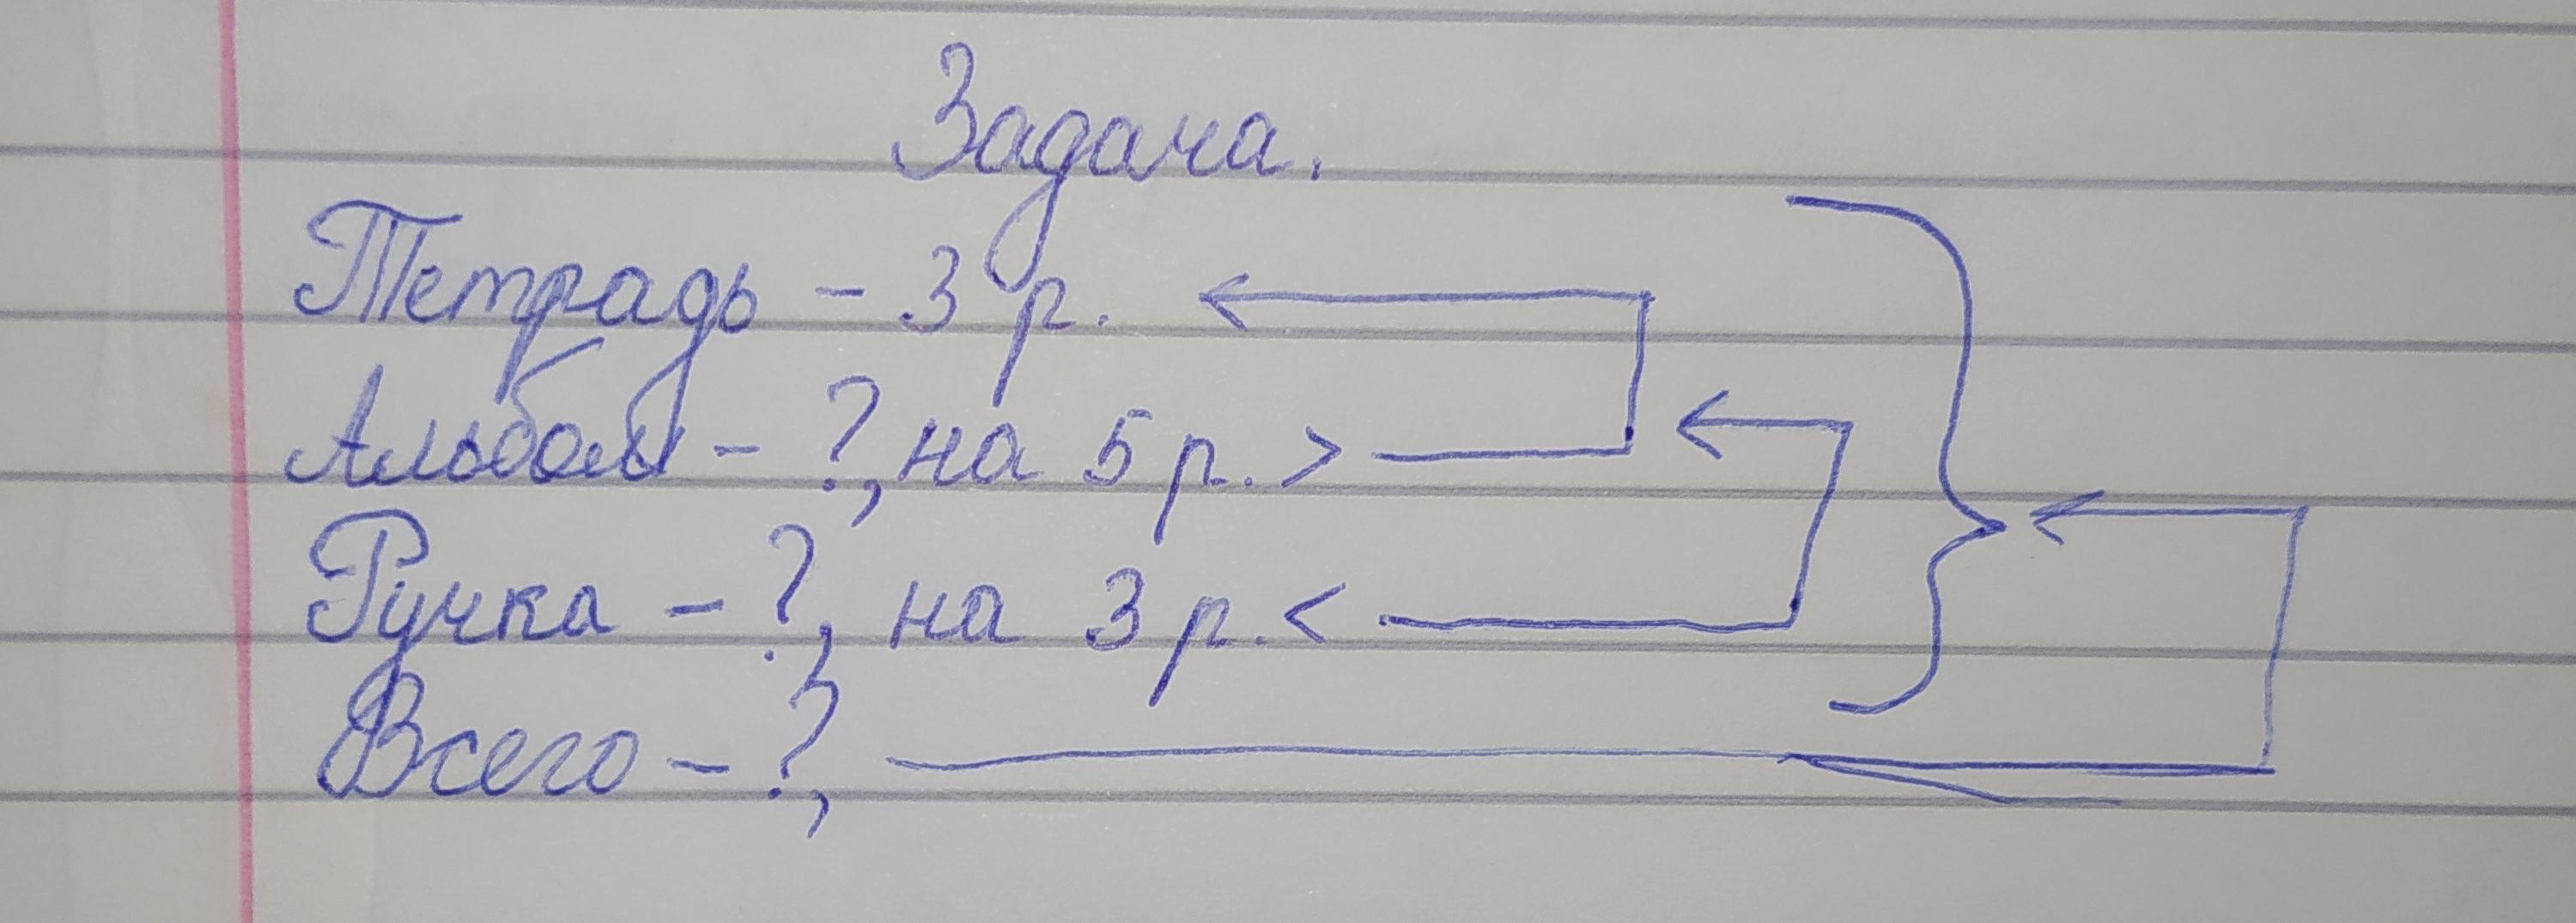 Задача.
Тетрадь - 3 р.
Альбом - ?, на 5 р. >
Ручка - ?, на 3 р. <
Всего - ?,